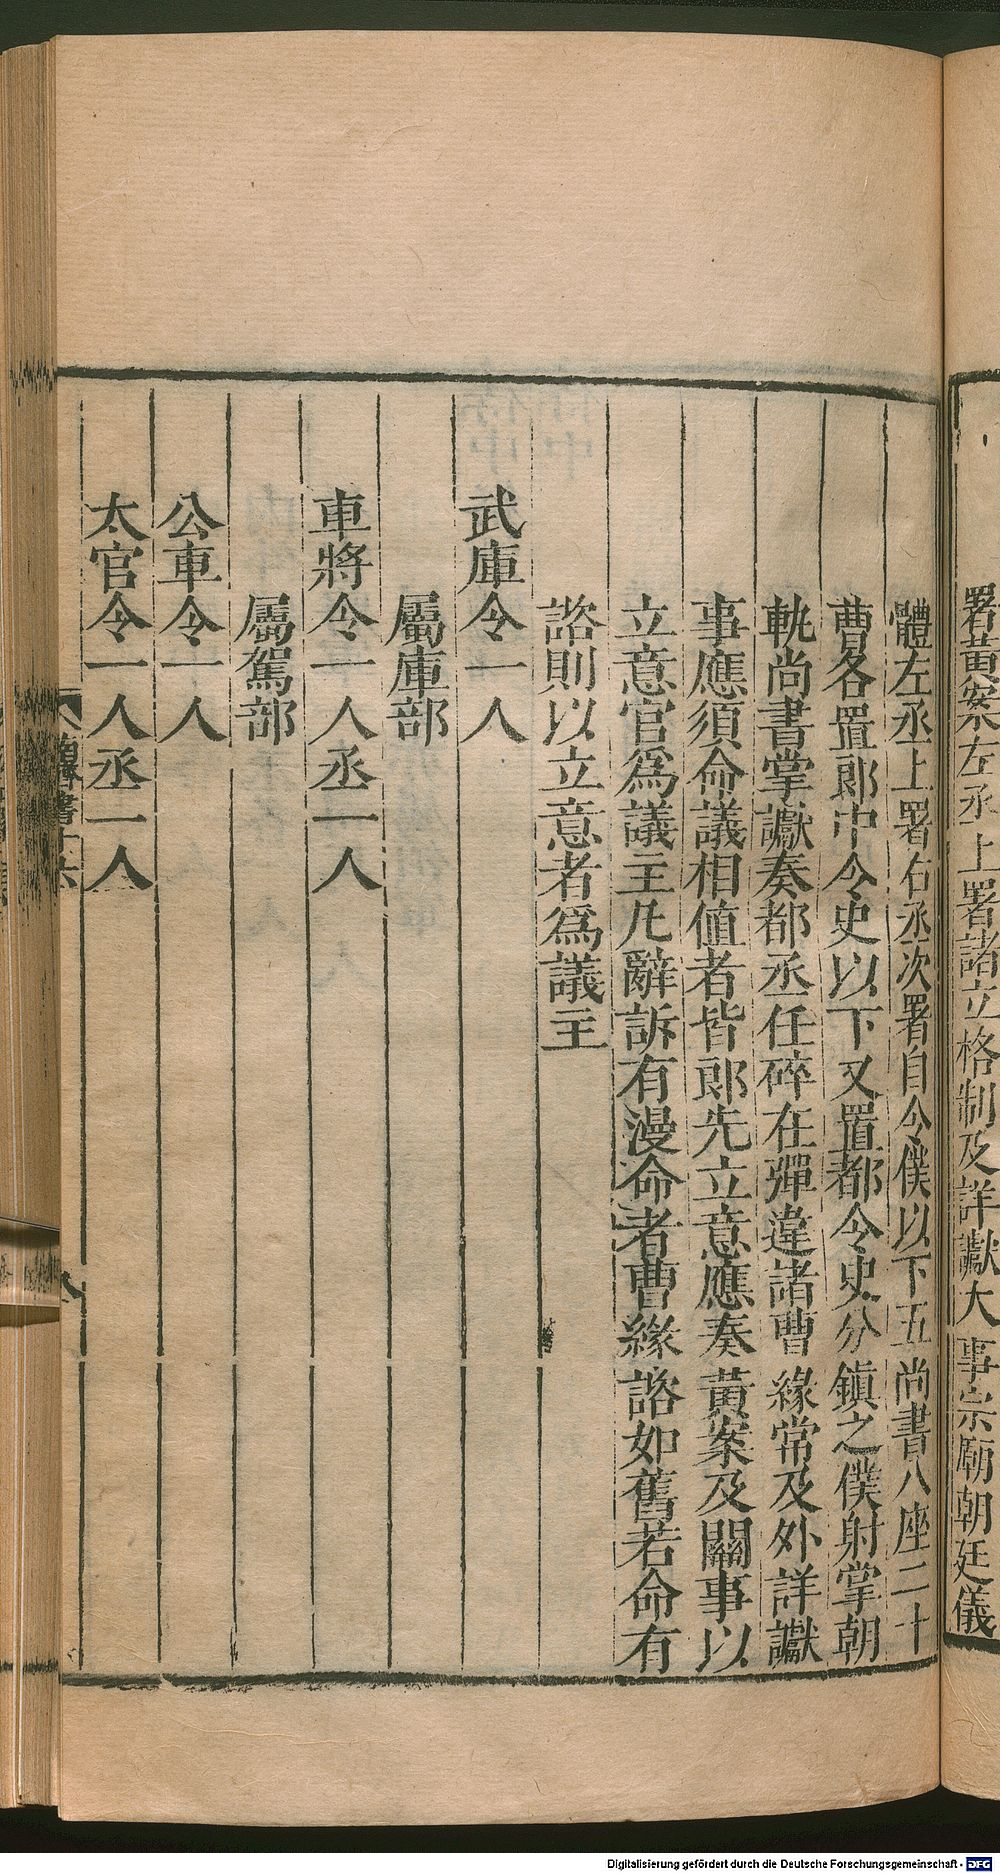 署黃案左丞上署諸立格制及詳讞大事宗廟朝廷儀
體左丞上署右丞次署自令僕以下五尚書八座二十
曹各置郎中令史以下又置都令史分鎮之僕射掌朝
軌尚書掌讞奏都丞任碎在彈違諸曹緣常及外詳讞
事應須命議相值者皆郎先立意應奏黃案及關事以
立意官為議主凡辭訴有漫命者曹緣諮如舊若命有
諮則以立意者為議主
武庫令一人
屬庫部
車將令一人丞一人
屬駕部
公車令一人
太官令一人丞一人
書十六
Digitalisierung gefördert durch die Deutsche Forschungsgemeinschaft - DFG